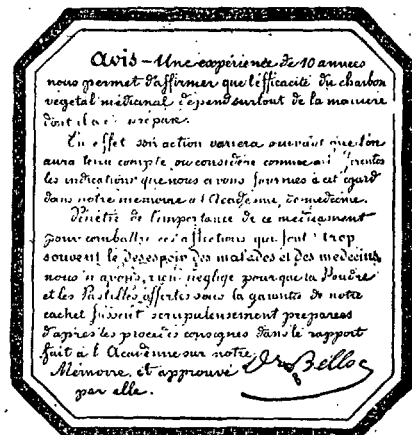 Avis – Une expérience de 10 années
nous permet d'affirmer que l'éfficacité du charbon
vegetal médicinal dépend surtout de la manière
dont il a été préparé.
En effet son action variera suivant que l'on
aura tenu compte ou considéré comme
les indications que nous avons fournies à cet égard
dans notre memoire a l'Academie de medecine.
Pénétré de l'importance de ce médicament
pour combattre ces affections qui font trop
souvent le desespoir des malades et des medecins,
nous n'avons rien négligé pour que la Poudre
et les Pastilles offertes sous la garantie de notre
cachet fussent scrupuleusement preparees
d'après les procédés consignés dans le rapport
fait à l'Académie sur notre
Mémoire, et approuvé
par elle.
Dr Belloc